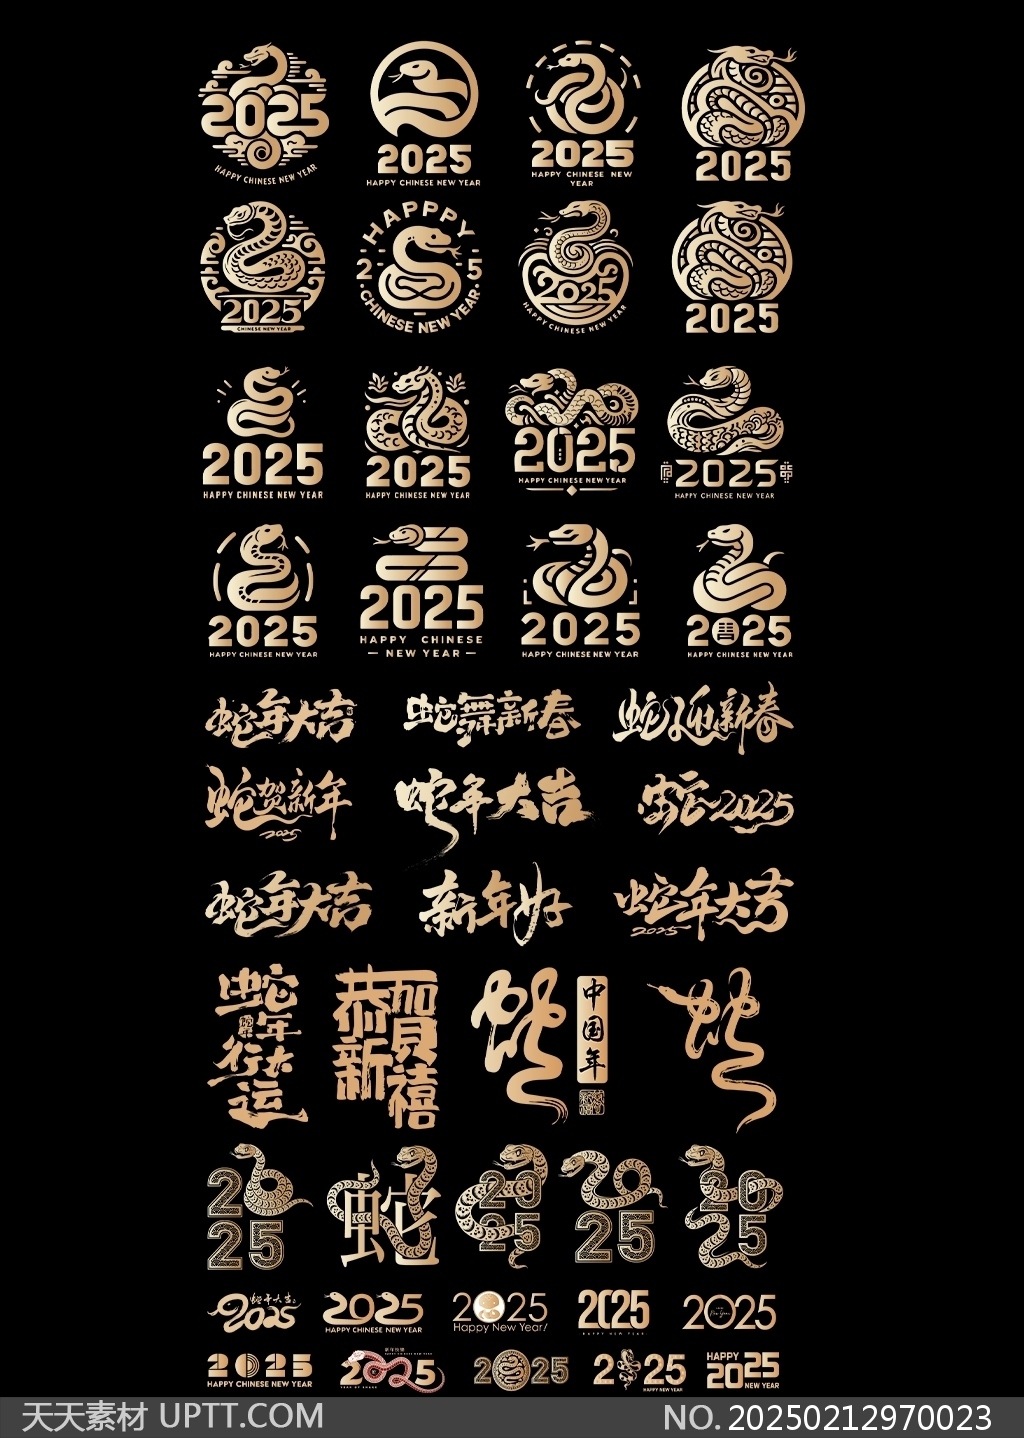 2025
HAPPY CHINESE NEW YEAR
2025
HAPPY CHINESE NEW YEAR
2025
HAPPY CHINESE NEW
YEAR
2025
2025
CHINESE NEW YEAR
HAPPPY
2 5
CHINESE NEW YEAR
2025
HAPPY CHINESE NEW YEAR
2025
2025
HAPPY CHINESE NEW YEAR
2025
HAPPY CHINESE NEW YEAR
2025
HAPPY CHINESE NEW YEAR
2025
HAPPY CHINESE NEW YEAR
2025
HAPPY CHINESE NEW YEAR
2025
HAPPY CHINESE
NEW YEAR
2025
HAPPY CHINESE NEW YEAR
2 25
HAPPY CHINESE NEW YEAR
蛇年大吉
蛇舞新春
蛇迎新春
蛇贺新年
2025
蛇年大吉
蛇2025
蛇年大吉
新年好
蛇年大吉
2025
蛇年行大运
恭賀新禧
蛇
中国年
蛇
20
25
蛇
20
25
2
25
20
25
蛇年大吉
2025
2025
HAPPY CHINESE NEW YEAR
2025
Happy New Year!
2025
HAPPY NEW YEAR
2025
New Year
2025
HAPPY CHINESE NEW YEAR
2025
2025
2025
HAPPY NEW YEAR
HAPPY
2025
NEW YEAR
天天素材 UPTT.COM
NO. 20250212970023